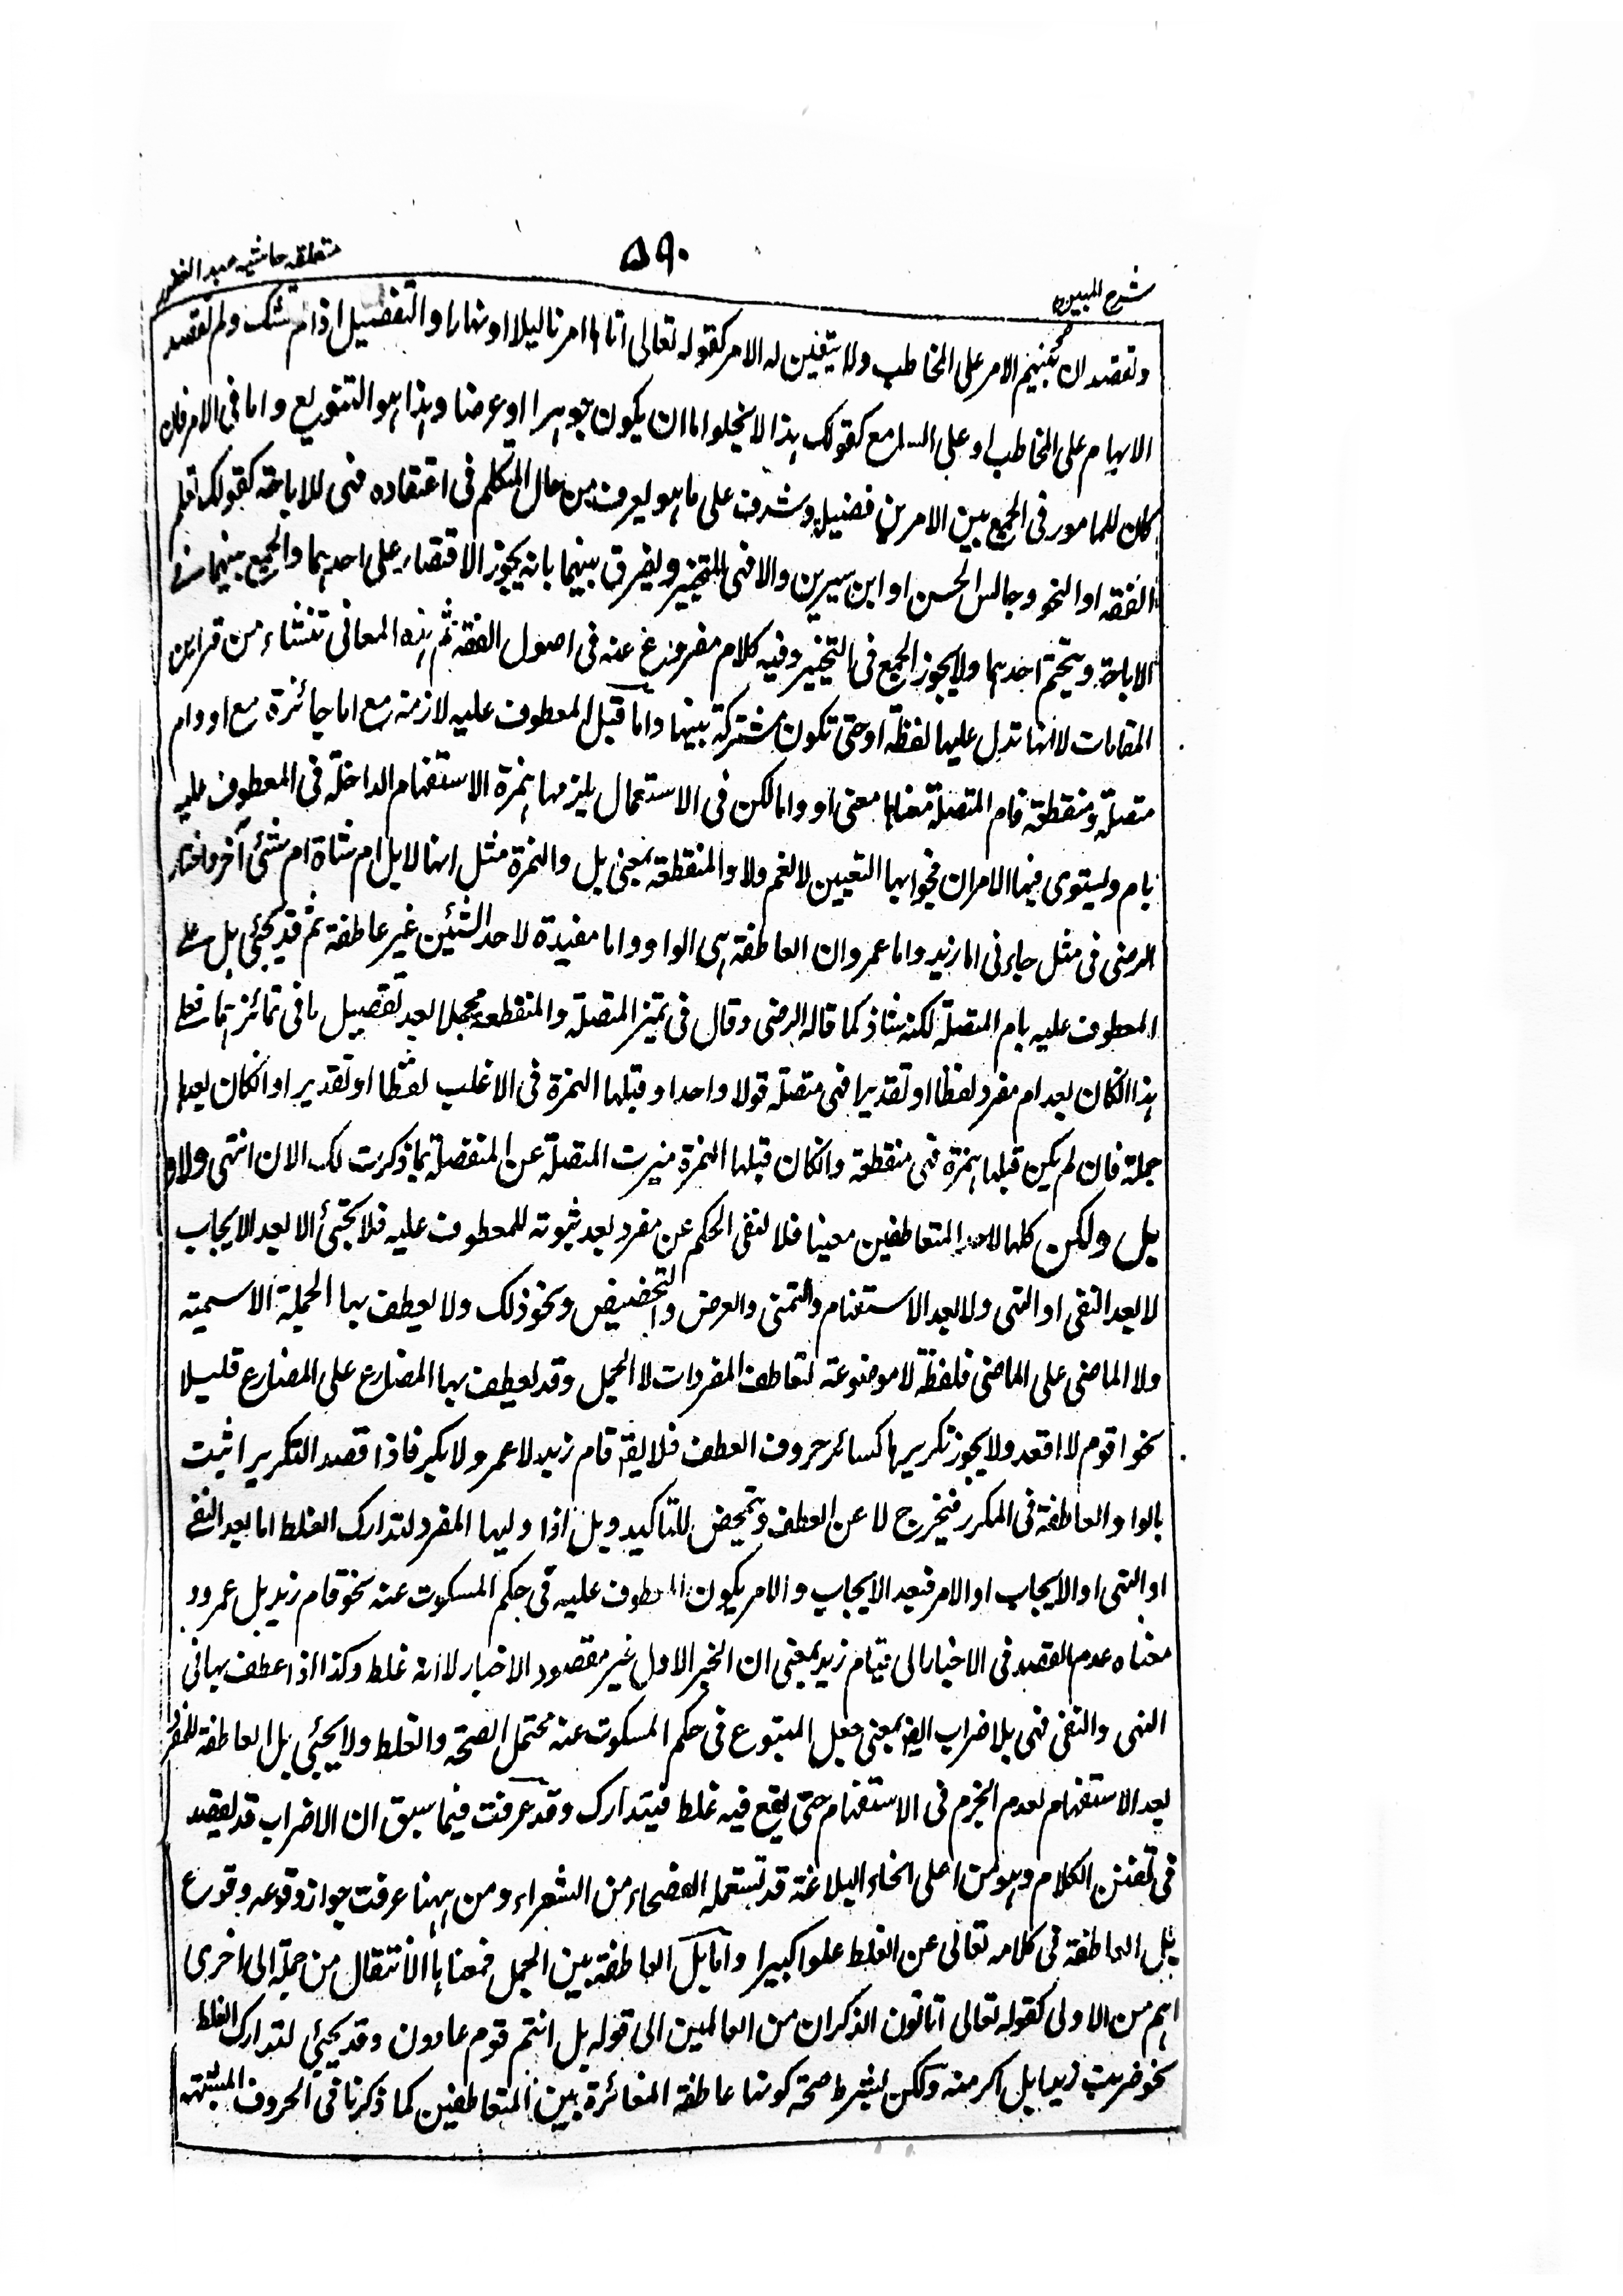 شرح المبین
۵۹۰
متعلقہ حاشیہ عبد الغفور
وتقصد ان تبہم الامر علی المخاطب ولا یتعین لہ الامر کقولہ تعالی اتاہا امرنا لیلا او نہارا والتفصیل اذا لم تشک ولم تقصد
الابہام علی المخاطب او علی السامع کقولک ہذا لا یخلو اما ان یکون جوہرا او عرضا وہذا ہو التنویع واما فی الامر فان
کان للمامور فی الجمع بین الامرین فضیلۃ وشرف علی ما ہو یعرف من حال المتکلم فی اعتقادہ فہی للاباحۃ کقولک تعلم
الفقہ او النحو وجالس الحسن او ابن سیرین والا فہی للتخییر ویفرق بینہما بانہ یجوز الاقتصار علی احدہما والجمع بینہما فی
الاباحۃ ویتحتم احدہما ولا یجوز الجمع فی التخییر وفیہ کلام مفروغ عنہ فی اصول الفقہ ثم ہذہ المعانی تنشاء من قراین
المقامات لا انہا تدل علیہا لفظۃ او حتی تکون مشترکۃ بینہا واما قبل المعطوف علیہ لازمۃ مع اما جائزۃ مع او وام
متصلۃ ومنقطعۃ فام المتصلۃ معناہا معنی او واما لکن فی الاستعمال یلزمہا ہمزۃ الاستفہام الداخلۃ فی المعطوف علیہ
بام ویستوی فیہا الامران فجوابہا التعیین لا نعم ولا والمنقطعۃ بمعنی بل والہمزۃ مثل انہا لابل ام شاۃ ام شئی آخر واختار
الرضی فی مثل جاءنی اما زید واما عمرو ان العاطفۃ ہی الواو واما مفیدۃ لاحد الشئین غیر عاطفۃ ثم قد یجئی بل علی
المعطوف علیہ بام المتصلۃ لکنہ شاذ کما قالہ الرضی وقال فی تمیز المتصلۃ والمنقطعۃ مجملا بعد تفصیل ما فی تمائزہما فعلی
ہذا انکان بعد ام مفرد لفظا او تقدیرا فہی متصلۃ قولا واحدا وقبلہا الہمزۃ فی الاغلب لفظا او تقدیرا وانکان بعدہا
جملۃ فان لم یکن قبلہا ہمزۃ فہی منقطعۃ وانکان قبلہا الہمزۃ میزت المتصلۃ عن المنفصلۃ بما ذکرت لک الان انتہی ولا و
بل ولکن کلہا لاحد المتعاطفین معینا فلا لنفی الحکم عن مفرد بعد ثبوتہ للمعطوف علیہ فلا تجئی الا بعد الایجاب
لا بعد النفی او النہی ولا بعد الاستفہام والتمنی والعرض والتحضیض ونحو ذلک ولا یعطف بہا الجملۃ الاسمیۃ
ولا الماضی علی الماضی فلفظۃ لا موضوعۃ لتعاطف المفردات لا الجمل وقد یعطف بہا المضارع علی المضارع قلیلا
نحو اقوم لا اقعد ولا یجوز تکریرہا کسائر حروف العطف فلا یقہ قام زید لا عمرو لا بکر فاذا قصد التکریر اثبت
بالواو العاطفۃ فی المکرر فیخرج لا عن العطف وتمحض للتاکید وبل اذا ولیہا المفرد لتدارک الغلط اما بعد النفی
او النہی او الایجاب او الامر فبعد الایجاب والامر یکون المعطوف علیہ فی حکم المسکوت عنہ نحو قام زید بل عمرو و
معناہ عدم القصد فی الاخبار الی قیام زید بمعنی ان الخبر الاول غیر مقصود الاخبار لا انہ غلط وکذا اذا عطف بہا فی
النہی والنفی فہی للاضراب ایضا بمعنی جعل المتبوع فی حکم المسکوت عنہ محتمل الصحۃ والغلط ولا یجئی بل العاطفۃ للمفرد
بعد الاستفہام لعدم الجزم فی الاستفہام حتی یقع فیہ غلط فیتدارک وقد عرفت فیما سبق ان الاضراب قد یقصد
فی تفنن الکلام وہو من اعلی انحاء البلاغۃ قد تستعملہ الفصحاء من الشعراء ومن ہہنا عرفت جواز وقوعہ وقوع
بل العاطفۃ فی کلامہ تعالی عن الغلط علوا کبیرا واما بل العاطفۃ بین الجمل فمعناہا الانتقال من جملۃ الی اخری
اہم من الاولی کقولہ تعالی اتاتون الذکران من العالمین الی قولہ بل انتم قوم عادون وقد یجئی لتدارک الغلط
نحو ضربت زیدا بل اکرمتہ ولکن لیشرط صحۃ کونہا عاطفۃ المغائرۃ بین المتعاطفین کما ذکرنا فی الحروف المشبہۃ